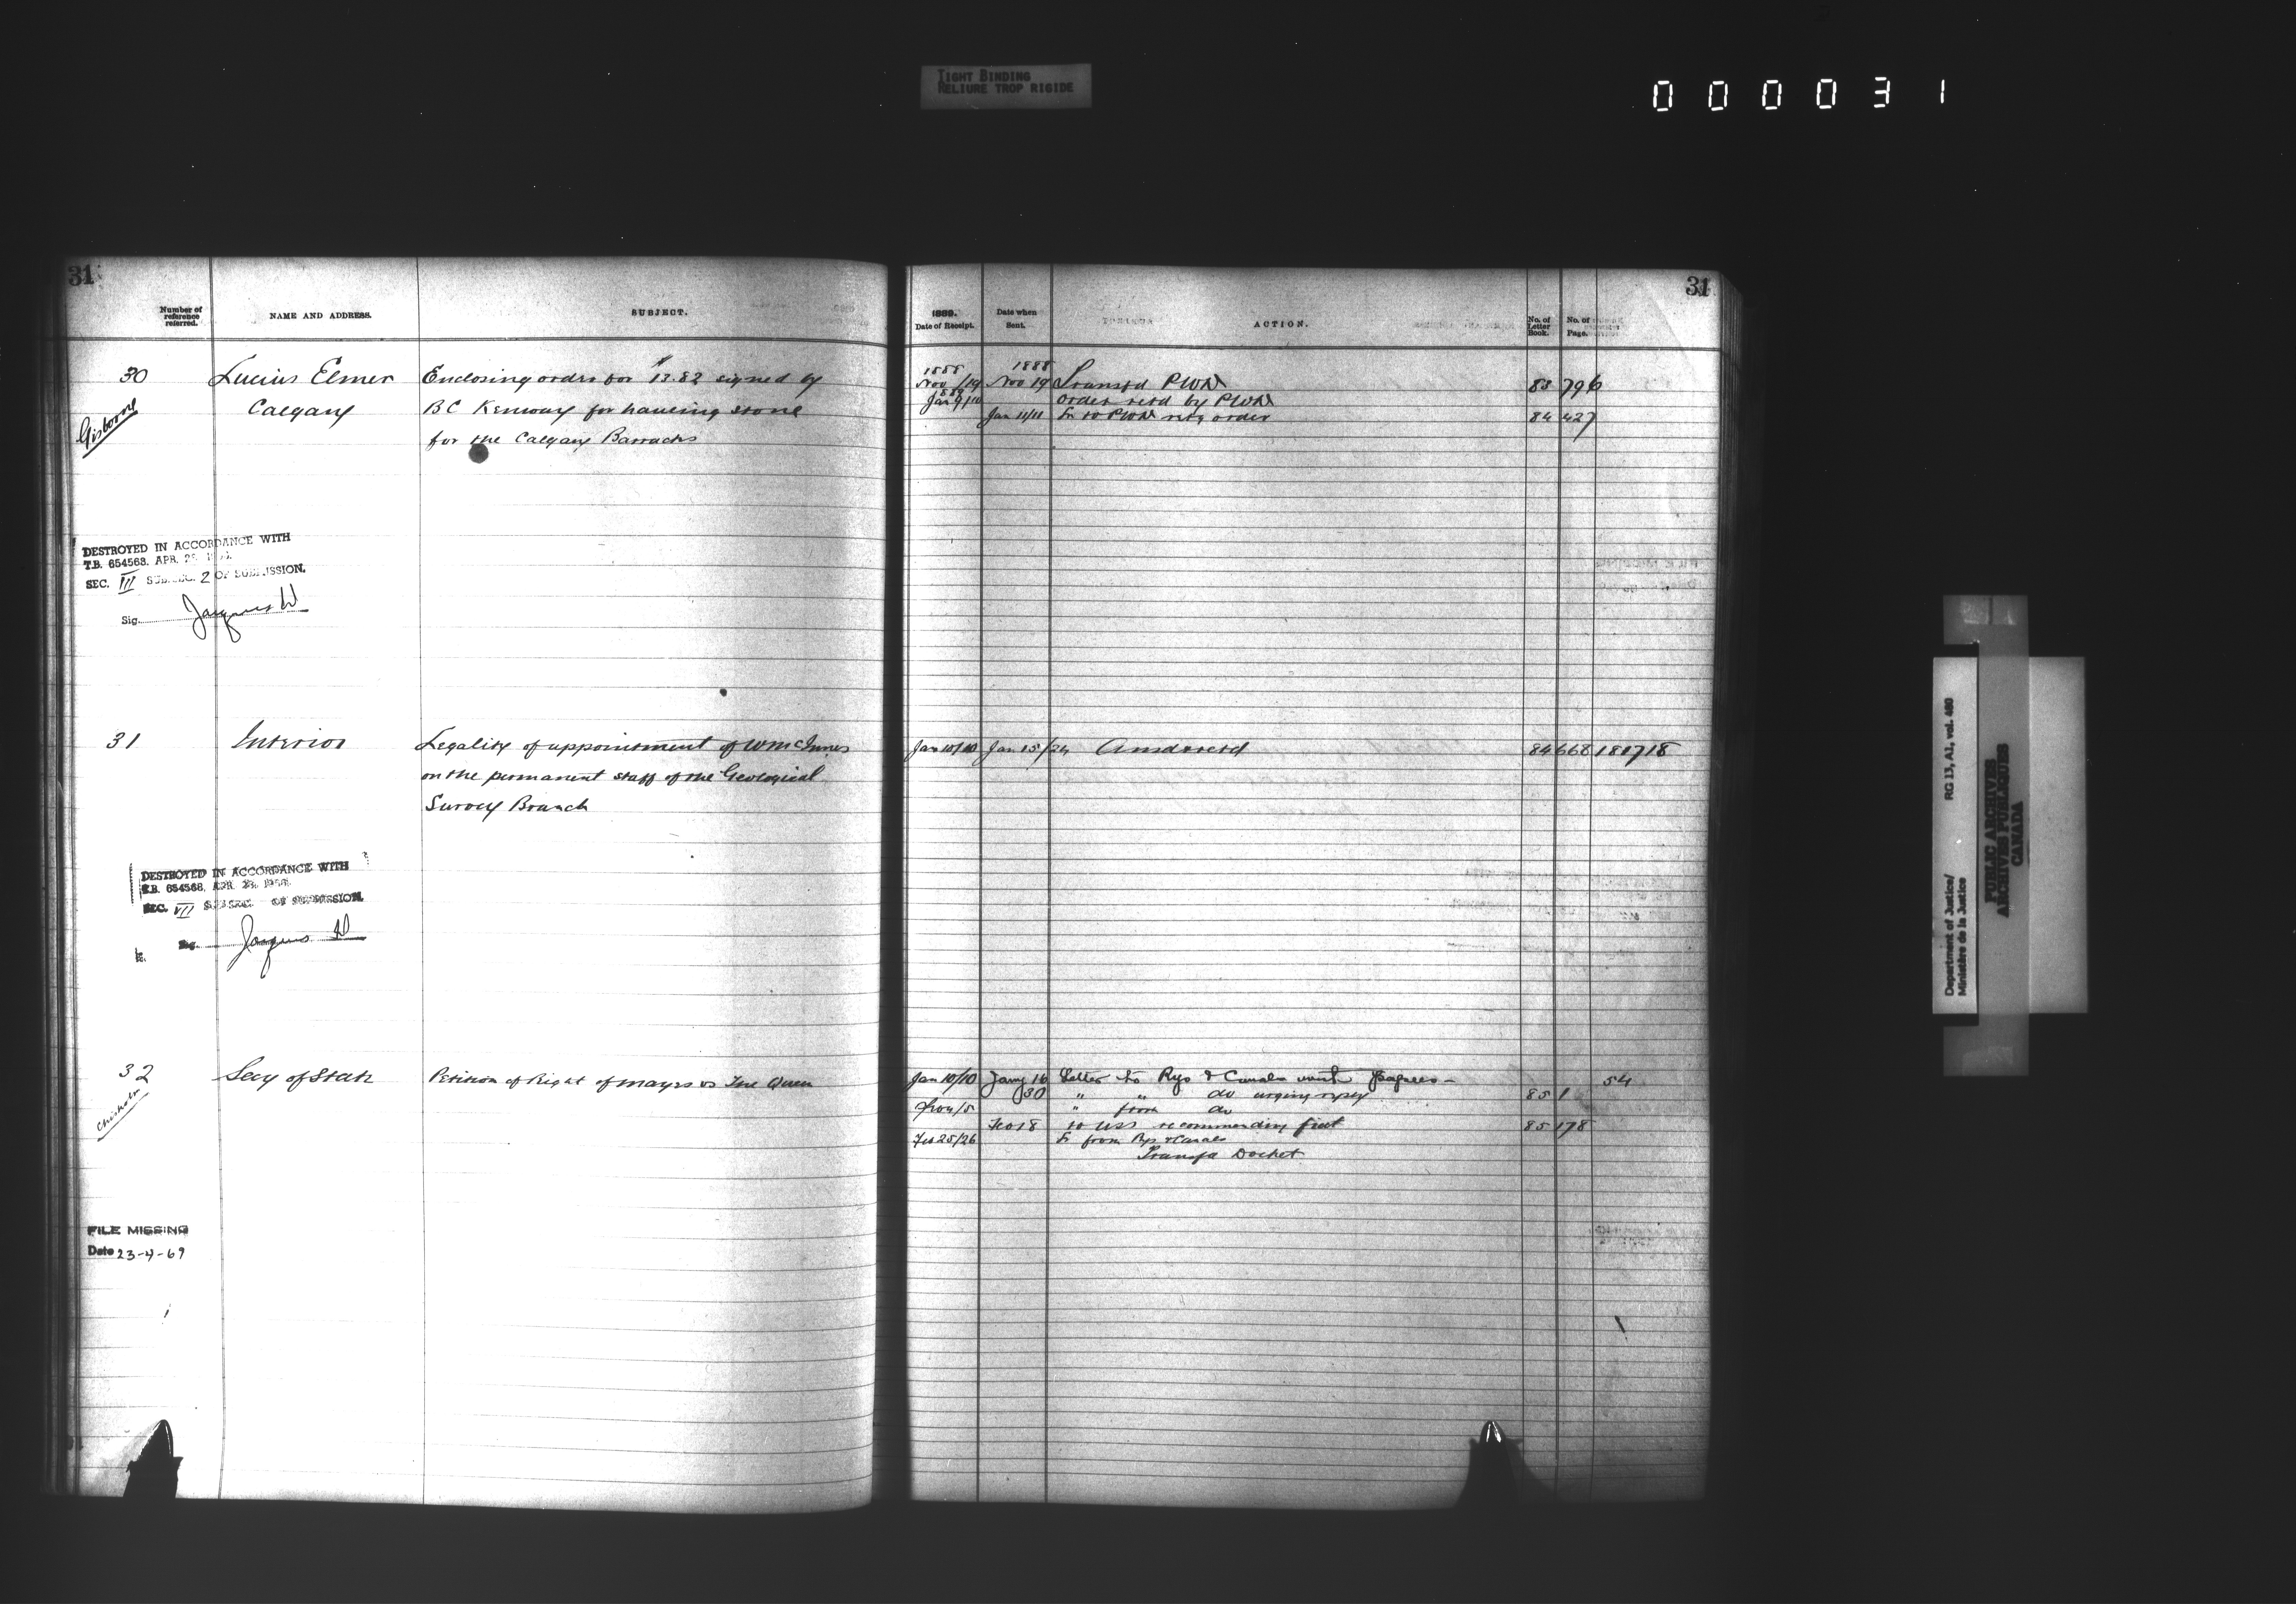 TIGHT BINDING
RELIURE TROP RIGIDE
000031
31
Number of reference referred.
NAME AND ADDRESS.
SUBJECT.
30
Lucius Elmer
Enclosing order for $13.82 signed by
Gisborne
Calgary
B C Kenway for hauling stone
for the Calgary Barracks
DESTROYED IN ACCORDANCE WITH
T.B. 654568. APR.
SEC. III SUBSEC. 2 OF SUBMISSION.
Sig. Jacques
31
Interior
Legality of appointment of Wm McInnes
on the permanent staff of the Geological
Survey Branch
DESTROYED IN ACCORDANCE WITH
T.B. 654568. APR.
SEC. VII SUBSEC. OF SUBMISSION.
Sig. Jacques
32
Secy of State
Petition of Right of Mayes vs The Queen
Chisholm
FILE MISSING
Date 23-4-69
31
1889.
Date of Receipt.
Date when Sent.
ACTION.
No. of Letter Book.
No. of Page.
1888 1888
Nov /19 Nov 19 Transfd PWD 83 796
Jan 9/10 order retd by PWD
Jan 11/11 Lr to PWD retg order 84 427
Jan 10/10 Jan 15/24 Answered 84 668
Jan 10/10 Jany 16 Letter to Rys & Canals with papers - 54
30 " " do urging reply 85 1
" from do
Feb 18 to USS recommending fiat 85 178
Feb 25/26 Lr from Rys & Canals
Transfd Docket
Department of Justice/
Ministère de la Justice
RG 13, A2, vol. 480
PUBLIC ARCHIVES
ARCHIVES PUBLIQUES
CANADA